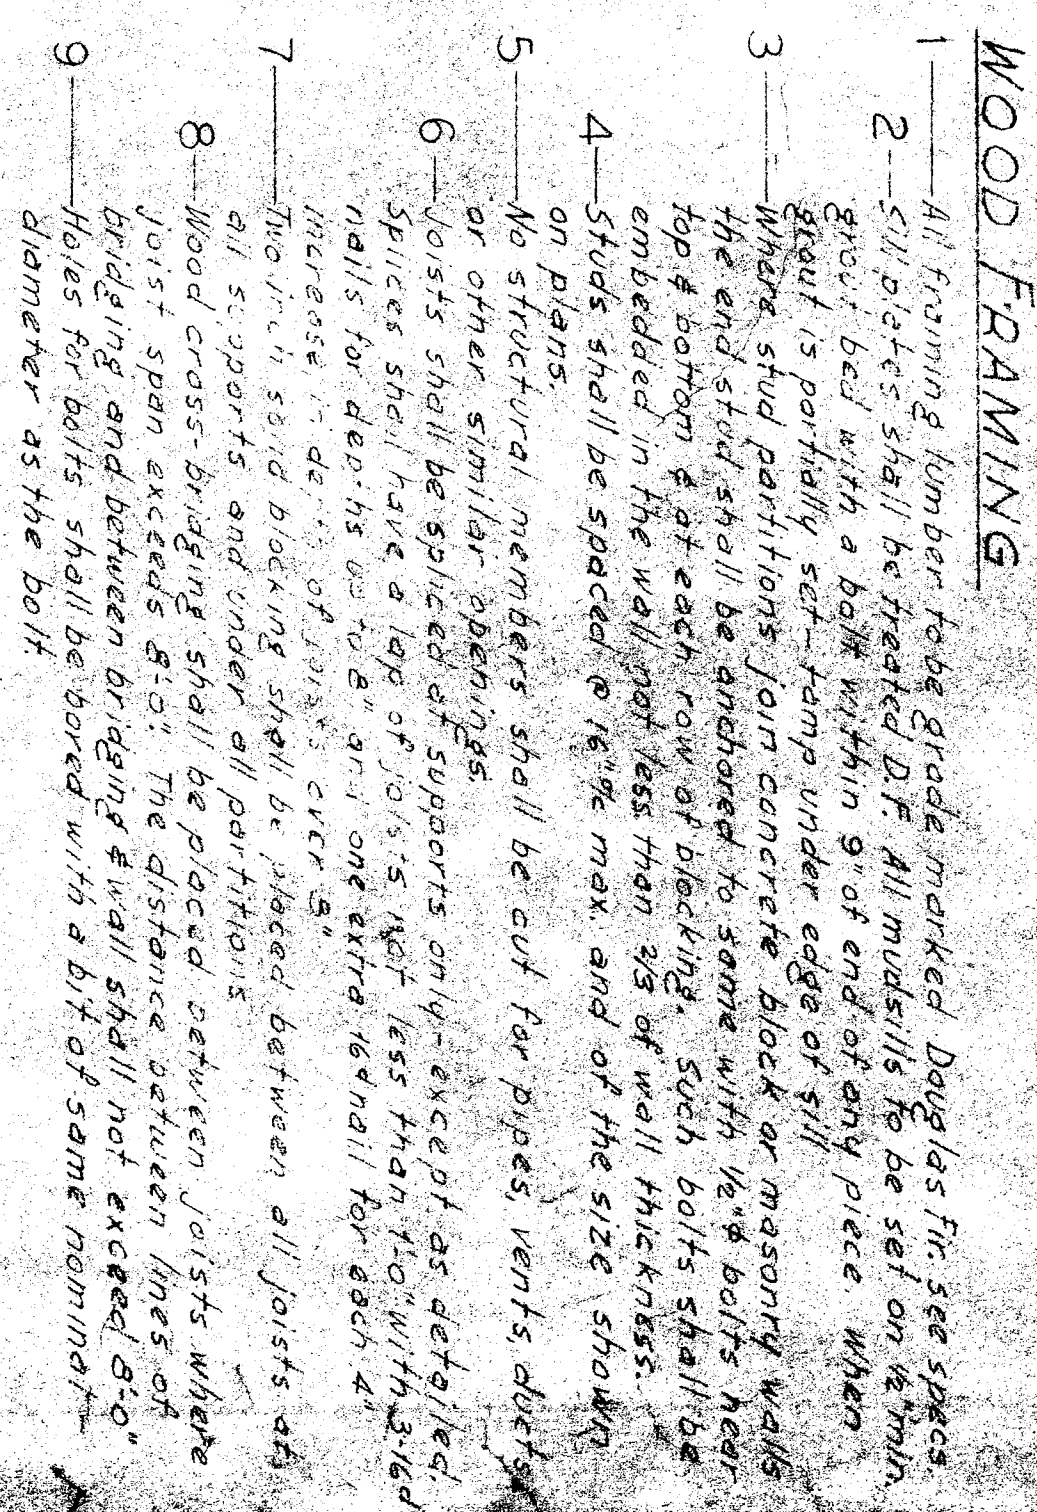 WOOD FRAMING
1 — All framing lumber to be grade marked Douglas fir. see specs.
2 -- Sill plates shall be treated D.F. All mudsills to be set on 1/2" min.
grout bed with a bolt within 9" of end of any piece. When
grout is partially set-tamp under edge of sill
3 — Where stud partitions join concrete block or masonry walls
the end stud shall be anchored to same with 1/2"ø bolts near
top & bottom & at each row of blocking. Such bolts shall be
embedded in the wall not less than 2/3 of wall thickness.
4 — Studs shall be spaced @ 16"% max. and of the size shown
on plans.
5 — No structural members shall be cut for pipes, vents, ducts
or other similar openings.
6 — Joists shall be spliced at supports only-except as detailed.
Splices shall have a lap of joists not less than 1'-0" with 3-16d
nails for depths up to 8" and one extra 16d nail for each 4"
increase in depth of joists over 8"
7 — Two inch solid blocking shall be placed between all joists at
all supports and under all partitions
8 -- Wood cross-bridging shall be placed between joists where
joist span exceeds 8'-0". The distance between lines of
bridging and between bridging & wall shall not exceed 8'-0"
9 — Holes for bolts shall be bored with a bit of same nominal
diameter as the bolt.